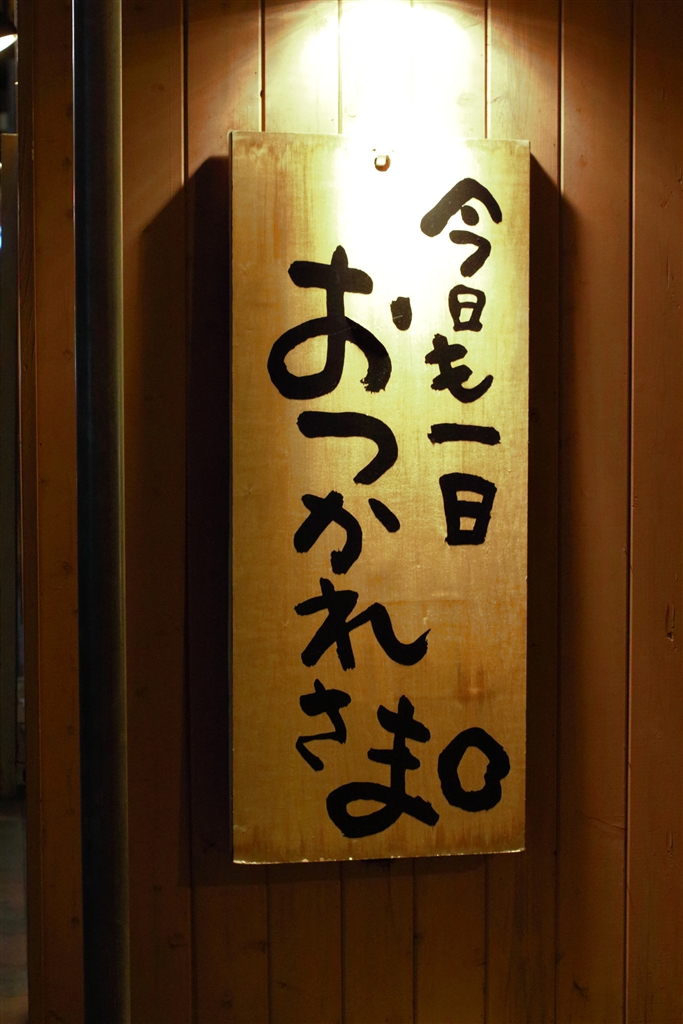 今日も一日
おつかれさま。